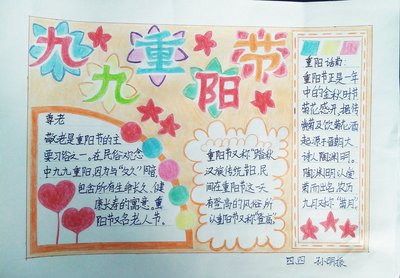 九九重阳节
尊老
敬老是重阳节的主
要习俗之一。在民俗观念
中九九重阳,因为与“久久”谐音
包含所有生命长久、健
康长寿的寓意。重
阳节又名老人节。
重阳节又称“踏秋”
汉族传统节日。民
间在重阳这一天
有登高的风俗,所
以重阳节又称“登高”
重阳诗南:
重阳节正是一年
中的金秋时节
菊花盛开,据传
赏菊及饮菊花酒
起源于晋朝大
诗人陶渊明。
陶渊明以爱
菊而出名,农历
九月又称“菊月”。
四.四